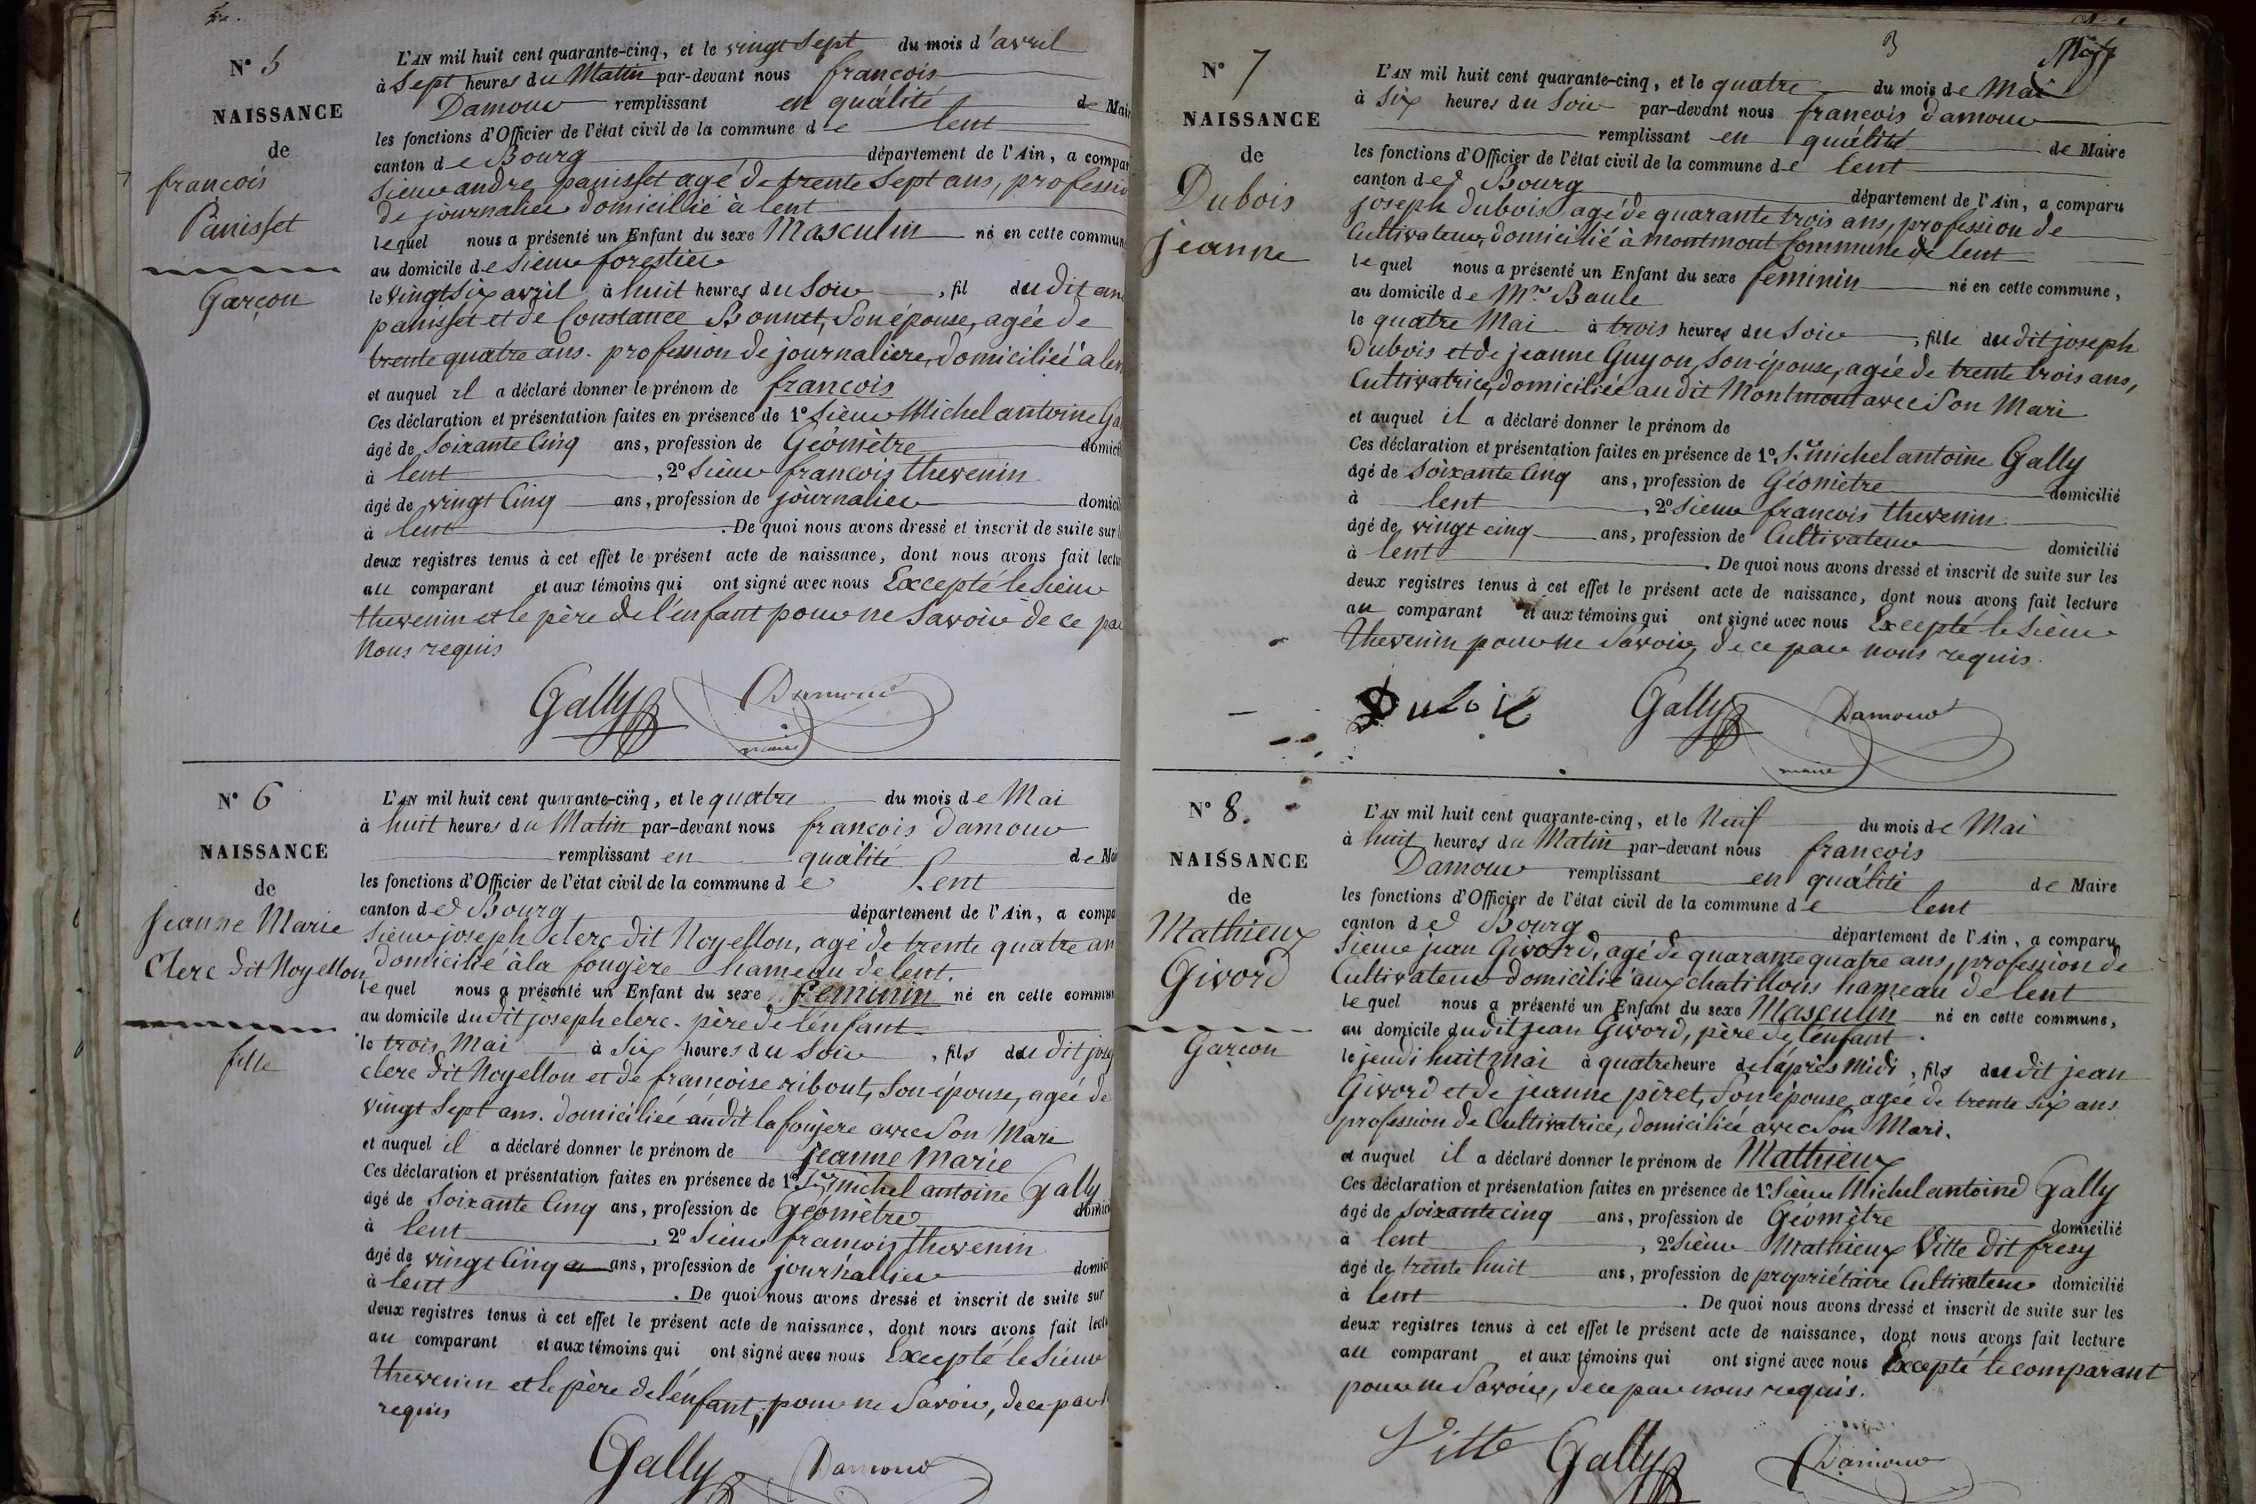 N° 5
NAISSANCE
de
françois
Panisset
Garçon
L'AN mil huit cent quarante-cinq, et le vingt sept du mois d'avril
à sept heures du Matin par-devant nous françois
Damour remplissant en qualité de Mair
les fonctions d'Officier de l'état civil de la commune de lent
canton de Bourg département de l'Ain, a compar
Sieur andre panisset agé de trente sept ans, professio
de journalier domicilié à lent
lequel nous a présenté un Enfant du sexe Masculin né en cette commun
au domicile de sieur forestier
le vingt six avril à huit heures du Soir, fil du dit an
panisset et de Constance Bonnet, Son épouse, agée de
trente quatre ans. profession de journaliere, domiciliée à len
et auquel il a déclaré donner le prénom de françois
Ces déclaration et présentation faites en présence de 1° Sieur Michel antoine Ga
âgé de Soixante Cinq ans, profession de Géomètre domici
à lent, 2° Sieur françois thevenin
âgé de vingt Cinq ans, profession de journalier domici
à lent. De quoi nous avons dressé et inscrit de suite sur
deux registres tenus à cet effet le présent acte de naissance, dont nous avons fait lectu
au comparant et aux témoins qui ont signé avec nous Excepté le Sieur
thevenin et le père de l'enfant pour ne Savoir de ce pa
Nous requis
Gally Damour
maire
N° 6
NAISSANCE
de
Jeanne Marie
Clerc dit Noyellon
fille
L'AN mil huit cent quarante-cinq, et le quatre du mois de Mai
à huit heures du Matin par-devant nous françois Damour
remplissant en qualité de Mai
les fonctions d'Officier de l'état civil de la commune de Lent
canton de Bourg département de l'Ain, a compa
Sieur joseph clerc dit Noyellon, agé de trente quatre an
domicilié à la fougère hameau de lent.
lequel nous a présenté un Enfant du sexe Feminin né en cette commun
au domicile du dit joseph clerc. père de l'enfant
le trois Mai à Six heures du Soir, fils du dit jos
clerc dit Noyellon et de françoise ribout, Son épouse, agée de
vingt Sept ans. domiciliée au dit la foujère avec Son Mari
et auquel il a déclaré donner le prénom de jeanne marie
Ces déclaration et présentation faites en présence de 1° Sr michel antoine Gally
âgé de Soixante Cinq ans, profession de Géomètre domici
à lent, 2° Sieur françois thevenin
âgé de vingt Cinq ans, profession de journallier domic
à lent. De quoi nous avons dressé et inscrit de suite sur
deux registres tenus à cet effet le présent acte de naissance, dont nous avons fait lectu
au comparant et aux témoins qui ont signé avec nous Excepté le Sieur
thevenin et le père de l'enfant, pour ne Savoir, de ce par
requis
Gally Damour
3
N° 7
NAISSANCE
de
Dubois
jeanne
L'AN mil huit cent quarante-cinq, et le quatre du mois de Mai
à Six heures du Soir par-devant nous françois damour
remplissant en qualité de Maire
les fonctions d'Officier de l'état civil de la commune de lent
canton de Bourg département de l'Ain, a comparu
joseph dubois agé de quarante trois ans, profession de
Cultivateur, domicilié à montmout Commune de lent
lequel nous a présenté un Enfant du sexe feminin né en cette commune,
au domicile de Mr Baule
le quatre Mai à trois heures du Soir, fille du dit joseph
Dubois et de jeanne Guyon, Son épouse, agée de trente trois ans,
Cultivatrice, domiciliée au dit Montmout avec Son Mari
et auquel il a déclaré donner le prénom de
Ces déclaration et présentation faites en présence de 1° Sr michel antoine Gally
âgé de Soixante Cinq ans, profession de Géomètre domicilié
à lent, 2° Sieur françois thevenin
âgé de vingt cinq ans, profession de Cultivateur domicilié
à lent. De quoi nous avons dressé et inscrit de suite sur les
deux registres tenus à cet effet le présent acte de naissance, dont nous avons fait lecture
au comparant et aux témoins qui ont signé avec nous Excepté le Sieur
thevenin pour ne Savoir, de ce par nous requis.
Dubois Gally Damour
maire
N° 8.
NAISSANCE
de
Mathieux
Givord
Garçon
L'AN mil huit cent quarante-cinq, et le Neuf du mois de Mai
à huit heures du Matin par-devant nous françois
Damour remplissant en qualité de Maire
les fonctions d'Officier de l'état civil de la commune de lent
canton de Bourg département de l'Ain, a comparu
Sieur jean Givord, agé de quarante quatre ans, profession de
Cultivateur domicilié aux chatillons hameau de lent
lequel nous a présenté un Enfant du sexe Masculin né en cette commune,
au domicile du dit jean Givord, père de l'enfant.
le jeudi huit mai à quatre heure de l'après Midi, fils du dit jean
Givord et de jeanne piret, Son épouse agée de trente six ans
profession de Cultivatrice, domiciliée avec Son Mari.
et auquel il a déclaré donner le prénom de Mathieux
Ces déclaration et présentation faites en présence de 1° Sieur Michel antoine Gally
âgé de Soixante cinq ans, profession de Géomètre domicilié
à lent, 2° Sieur Mathieux Vitte dit fresy
âgé de trente huit ans, profession de propriétaire Cultivateur domicilié
à lent. De quoi nous avons dressé et inscrit de suite sur les
deux registres tenus à cet effet le présent acte de naissance, dont nous avons fait lecture
au comparant et aux témoins qui ont signé avec nous Excepté le comparant
pour ne Savoir, de ce par nous requis.
Vitte Gally Damour